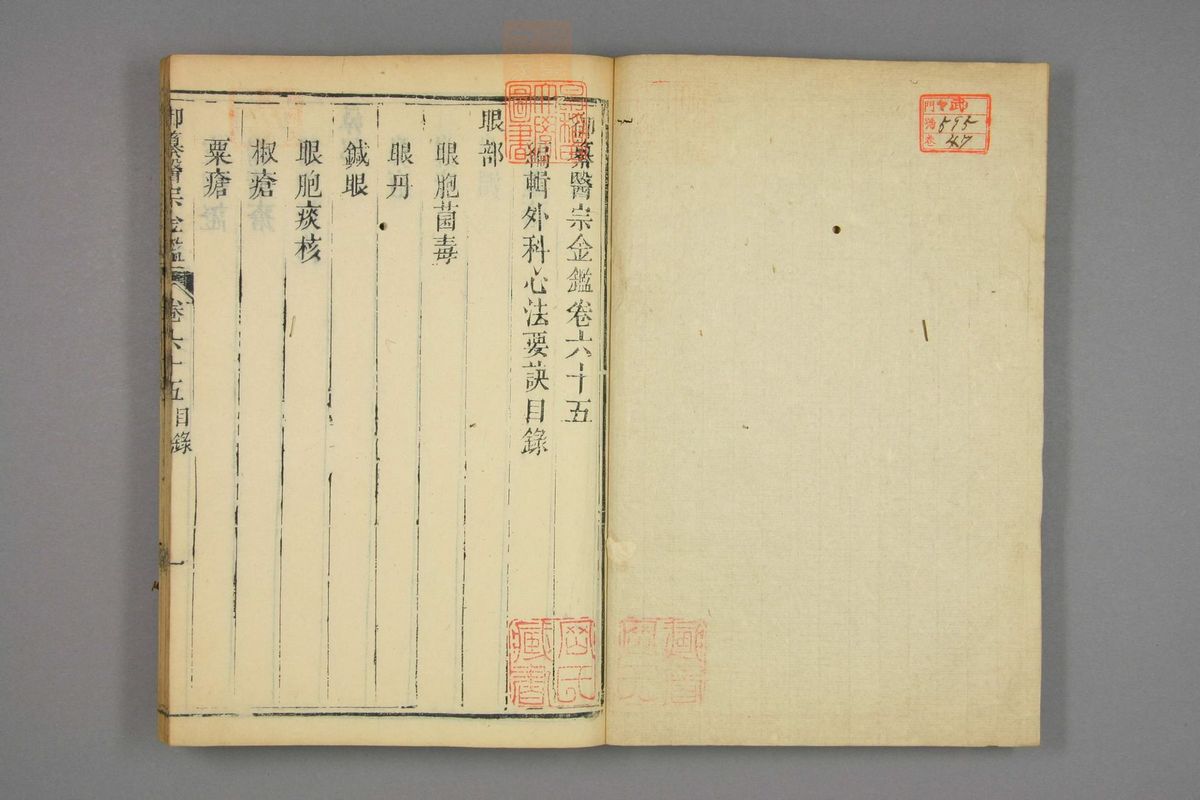 御纂醫宗金鑑卷六十五
編輯外科心法要訣目錄
眼部
眼胞菌毒
眼丹
鍼眼
眼胞痰核
椒瘡
粟瘡
御纂醫宗金鑑
卷六十五目錄
一
圖書
岡氏
藏書
門
號 595
卷 47